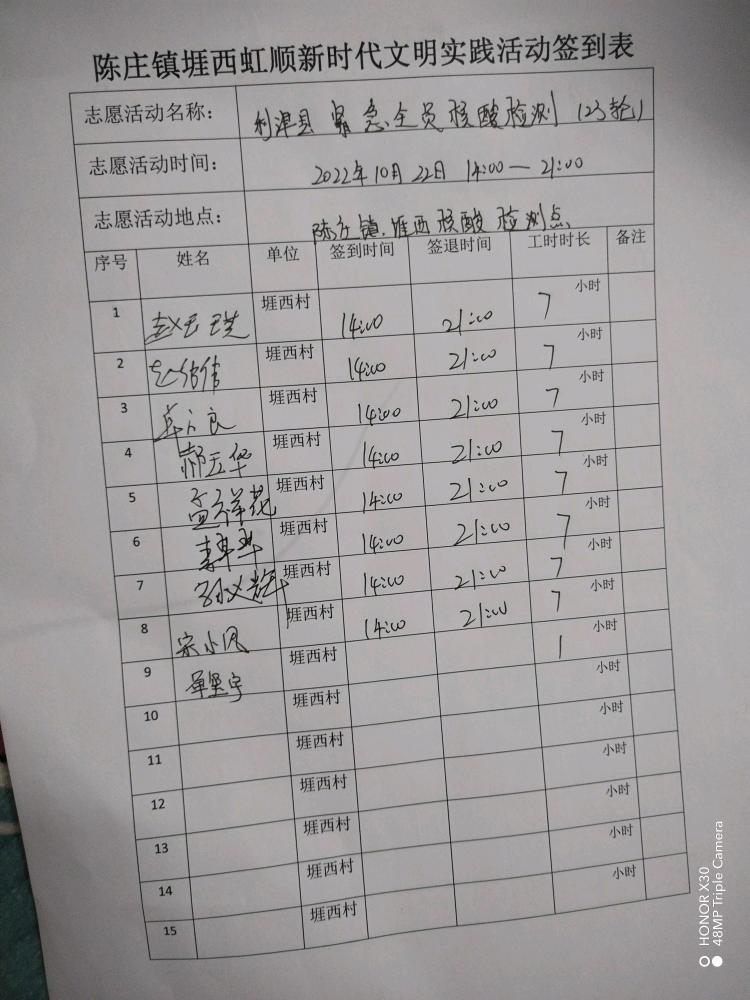 陈庄镇堐西虹顺新时代文明实践活动签到表
志愿活动名称: 利津县紧急全员核酸检测(23轮)
志愿活动时间: 2022年10月22日 14:00—21:00
志愿活动地点: 陈庄镇.堐西核酸检测点
序号 姓名 单位 签到时间 签退时间 工时时长 备注
1 赵玉琪 堐西村 14:00 21:00 7 小时
2 堐西村 14:00 21:00 7 小时
3 堐西村 14:00 21:00 7 小时
4 郝云华 堐西村 14:00 21:00 7 小时
5 孟祥花 堐西村 14:00 21:00 7 小时
6 堐西村 14:00 21:00 7 小时
7 孙义辉 堐西村 14:00 21:00 7 小时
8 宋小凤 堐西村 14:00 21:00 7 小时
9 堐西村 1 小时
10 堐西村 小时
11 堐西村 小时
12 堐西村 小时
13 堐西村 小时
14 堐西村 小时
15 堐西村 小时
HONOR X30
48MP Triple Camera